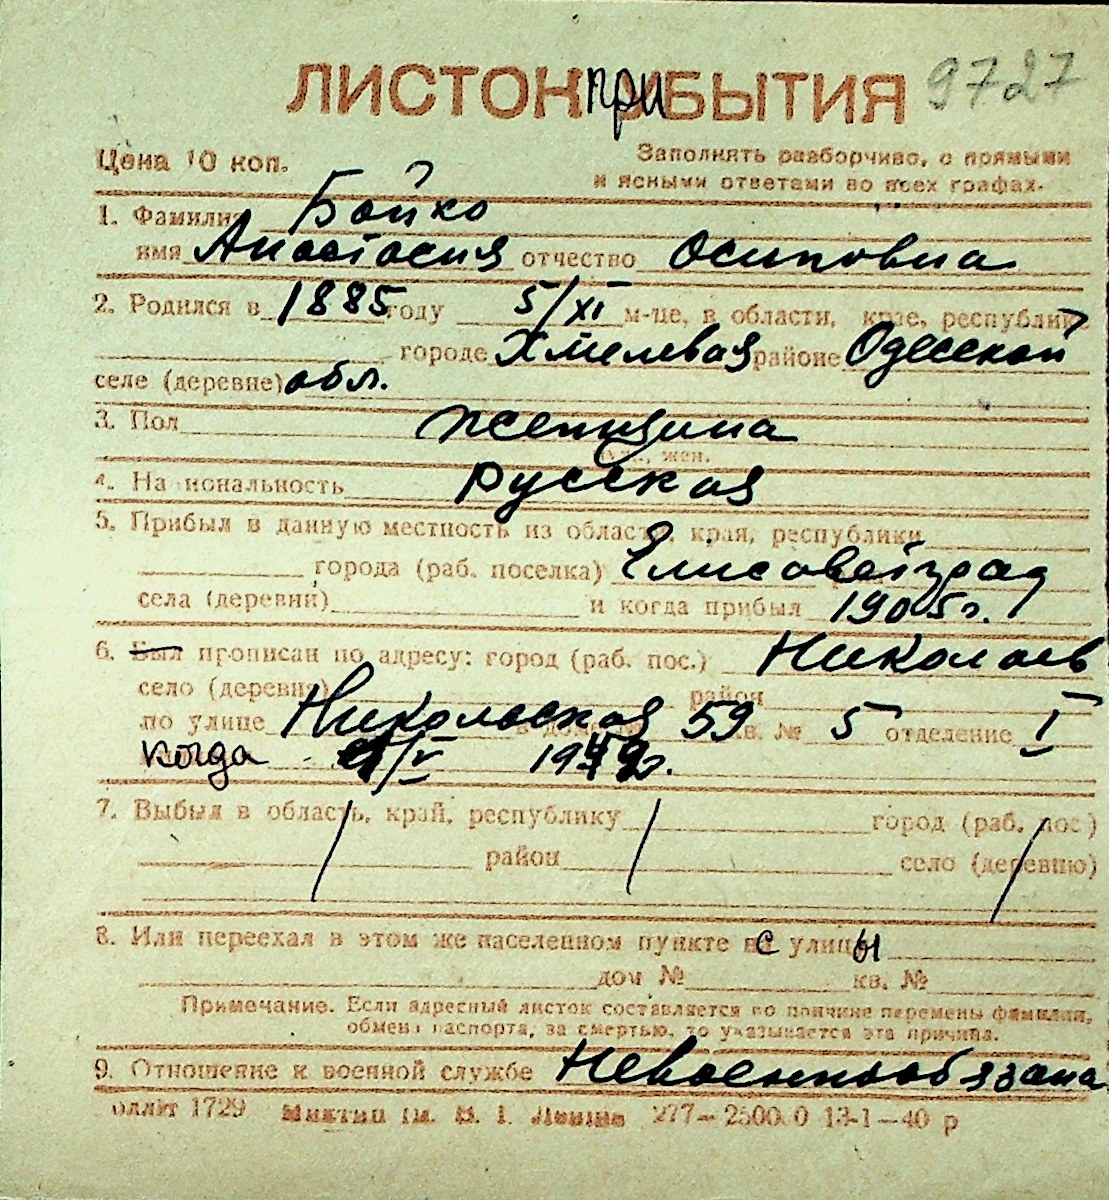 ЛИСТОК ПРИБЫТИЯ 9727
Цена 10 коп. Заполнять разборчиво, с прямыми
и ясными ответами во всех графах.
1. Фамилия Бойко
имя Анастасия отчество Осиповна
2. Родился в 1885 году 5/XI м-це, в области, крае, республике
городе Хмелевая районе Одесской
селе (деревне) обл.
3. Пол женщина
жен.
4. Национальность русская
5. Прибыл в данную местность из области, края, республики
города (раб. поселка) Елисоветград
села (деревни) и когда прибыл 1905г.
6. Был прописан по адресу: город (раб. пос.) Николаев
село (деревня) район
по улице Никольская 59 кв. № 5 отделение I
когда /V 1942г.
7. Выбыл в область, край, республику город (раб. пос.)
район село (деревню)
8. Или переехал в этом же населенном пункте с улицы
дом № кв. №
Примечание. Если адресный листок составляется по причине перемены фамилии,
обмена паспорта, за смертью, то указывается эта причина.
9. Отношение к военной службе Невоеннообязана
1729 им. В. І. Леніна 277—2500.0 13-1—40 р